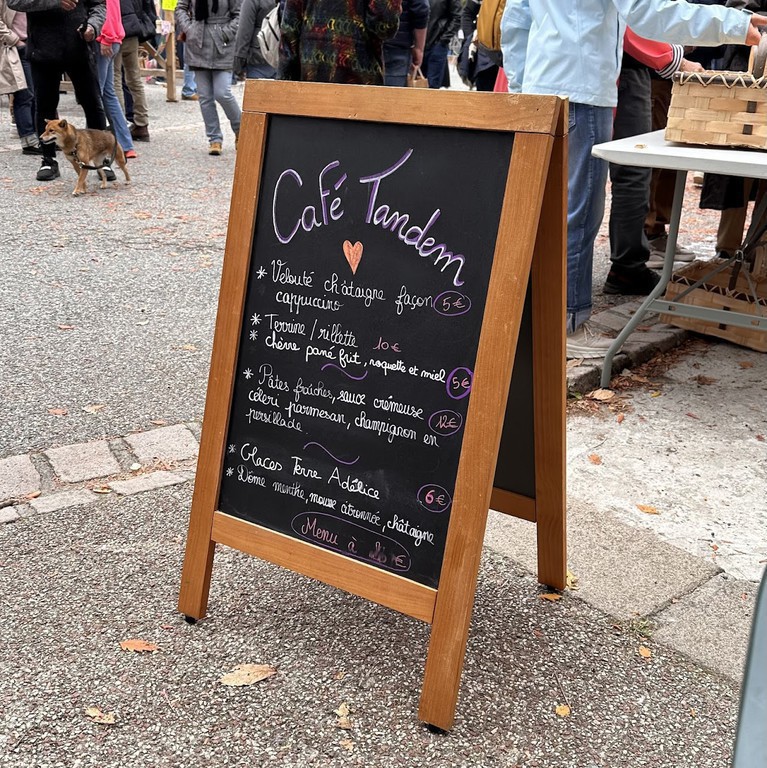 Café Tandem
* Velouté châtaigne façon 5€
cappuccino
* Terrine / rillette 10€
* chèvre pané frit, roquette et miel 5€
* Pâtes fraîches, sauce crémeuse
céleri parmesan, champignon en 12€
persillade
* Glaces Terre Adélice
* Dôme menthe, mousse citronnée, châtaigne 6€
Menu à €